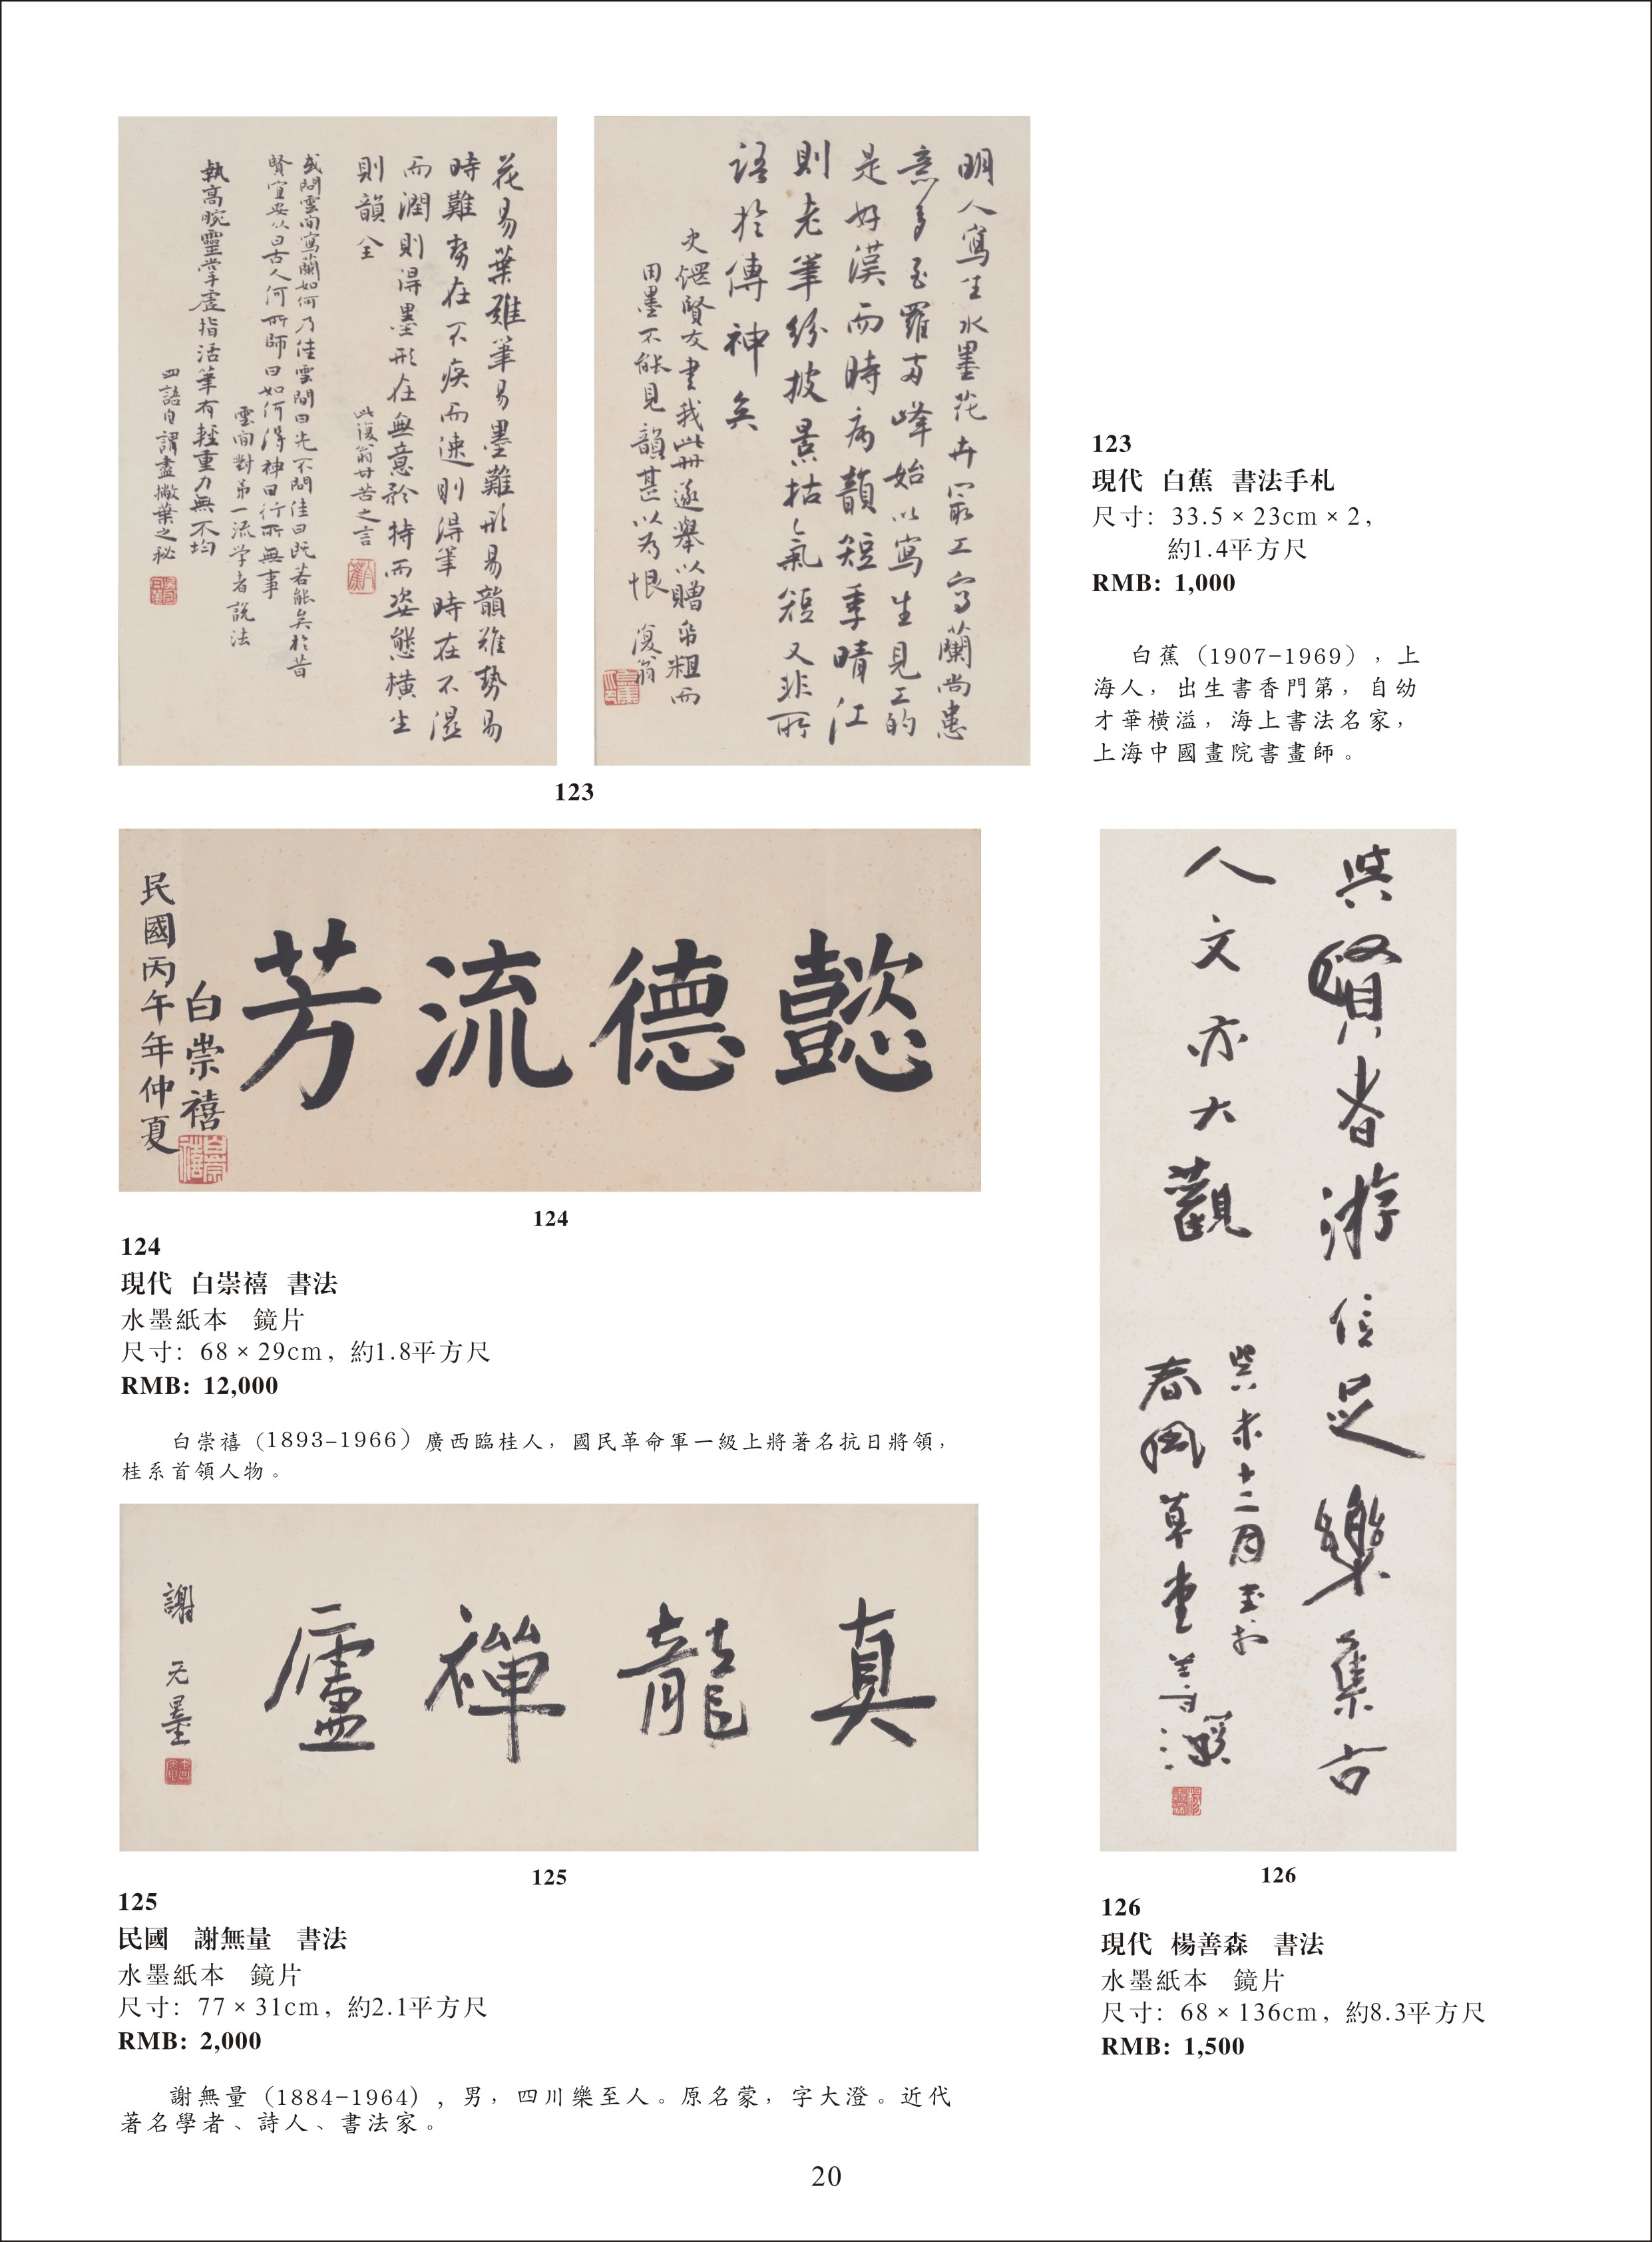 明人寫生水墨花卉最工寫蘭尚患
意多至羅兩峰始以寫生見工的
是好漢而時病韻短季晴江
則老筆紛披景枯氣短又非所
語於傳神矣
史偲賢友書我此冊遂舉以贈帋粗而
用墨不能見韻甚以為恨 復翁
花易葉難筆易墨難形易韻難勢易
時難勢在不疾而速則得筆時在不濕
而潤則得墨形在無意矜持而姿態橫生
則韻全
此復翁甘苦之言
或問雲間寫蘭如何乃佳雲間曰先不問佳曰既若能矣於昔
賢宜安從曰古人何所師曰如何得神曰行所無事
雲間對第一流學者說法
執高腕靈掌虛指活筆有輕重力無不均
四語自謂盡撇葉之秘
123
123
現代 白蕉 書法手札
尺寸: 33.5×23cm×2,
約1.4平方尺
RMB: 1,000
白蕉(1907-1969),上
海人,出生書香門第,自幼
才華橫溢,海上書法名家,
上海中國畫院書畫師。
懿德流芳
民國丙午年仲夏
白崇禧
124
124
現代 白崇禧 書法
水墨紙本 鏡片
尺寸: 68×29cm,約1.8平方尺
RMB: 12,000
白崇禧(1893-1966)廣西臨桂人,國民革命軍一級上將著名抗日將領,
桂系首領人物。
真龍禪廬
謝无量
125
125
民國 謝無量 書法
水墨紙本 鏡片
尺寸: 77×31cm,約2.1平方尺
RMB: 2,000
謝無量(1884-1964),男,四川樂至人。原名蒙,字大澄。近代
著名學者、詩人、書法家。
與賢者游信足樂集古
人文亦大觀
癸未十二月
春風草堂
126
126
現代 楊善森 書法
水墨紙本 鏡片
尺寸: 68×136cm,約8.3平方尺
RMB: 1,500
20